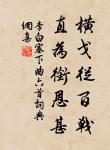 橫戈從百戰
直為銜恩甚
李白塞下曲六首詞典
網集